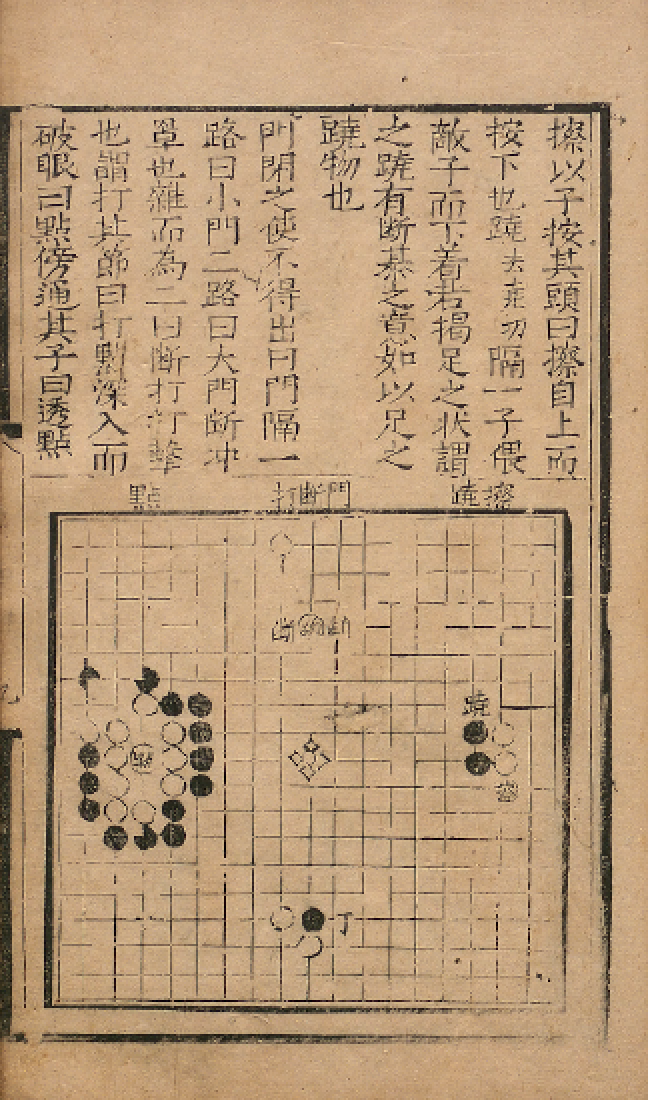 擦以子按其頭曰擦自上而
按下也蹺去堯切隔一子偎
敵子而下着若揭足之状謂
之蹺有斷棊之意如以足之
蹺物也
門閉之使不得出曰門隔一
路曰小門二路曰大門斷冲
也雖而為二曰斷打打擊
也謂打其節曰打點深入而
破眼曰點傍通其子曰透點
擦
蹺
門
斷
打
點
蹺